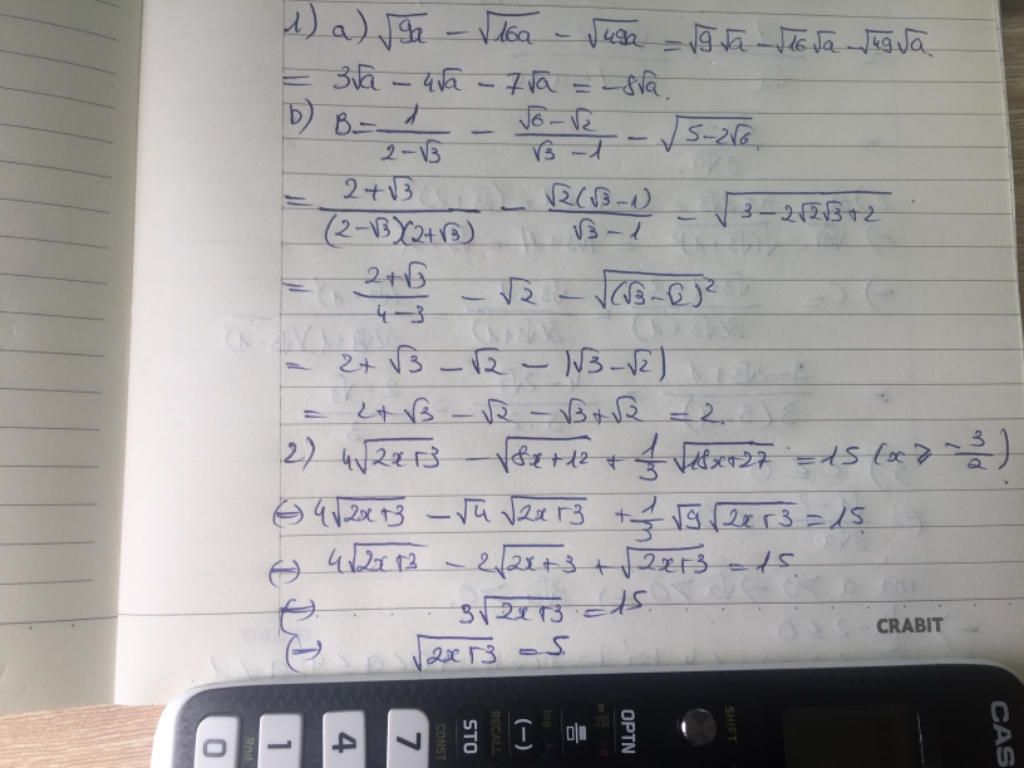 1) a) √9a − √16a − √49a = √9 √a − √16 √a − √49 √a
= 3√a − 4√a − 7√a = −8√a.
b) B = 1/(2−√3) − (√6−√2)/(√3−1) − √(5−2√6).
= (2+√3)/((2−√3)(2+√3)) − √2(√3−1)/(√3−1) − √(3−2√2√3+2)
= (2+√3)/(4−3) − √2 − √((√3−√2)²)
= 2+√3 − √2 − |√3−√2|
= 2+√3 − √2 − √3+√2 = 2.
2) 4√(2x+3) − √(8x+12) + 1/3 √(18x+27) = 15 (x ⩾ −3/2)
⇔ 4√(2x+3) − √4 √(2x+3) + 1/3 √9 √(2x+3) = 15
⇔ 4√(2x+3) − 2√(2x+3) + √(2x+3) = 15
⇔ 3√(2x+3) = 15
⇔ √(2x+3) = 5
CRABIT
SHIFT
OPTN
(−)
RECALL
STO
CONST
7
4
1
Rnd
0
CAS